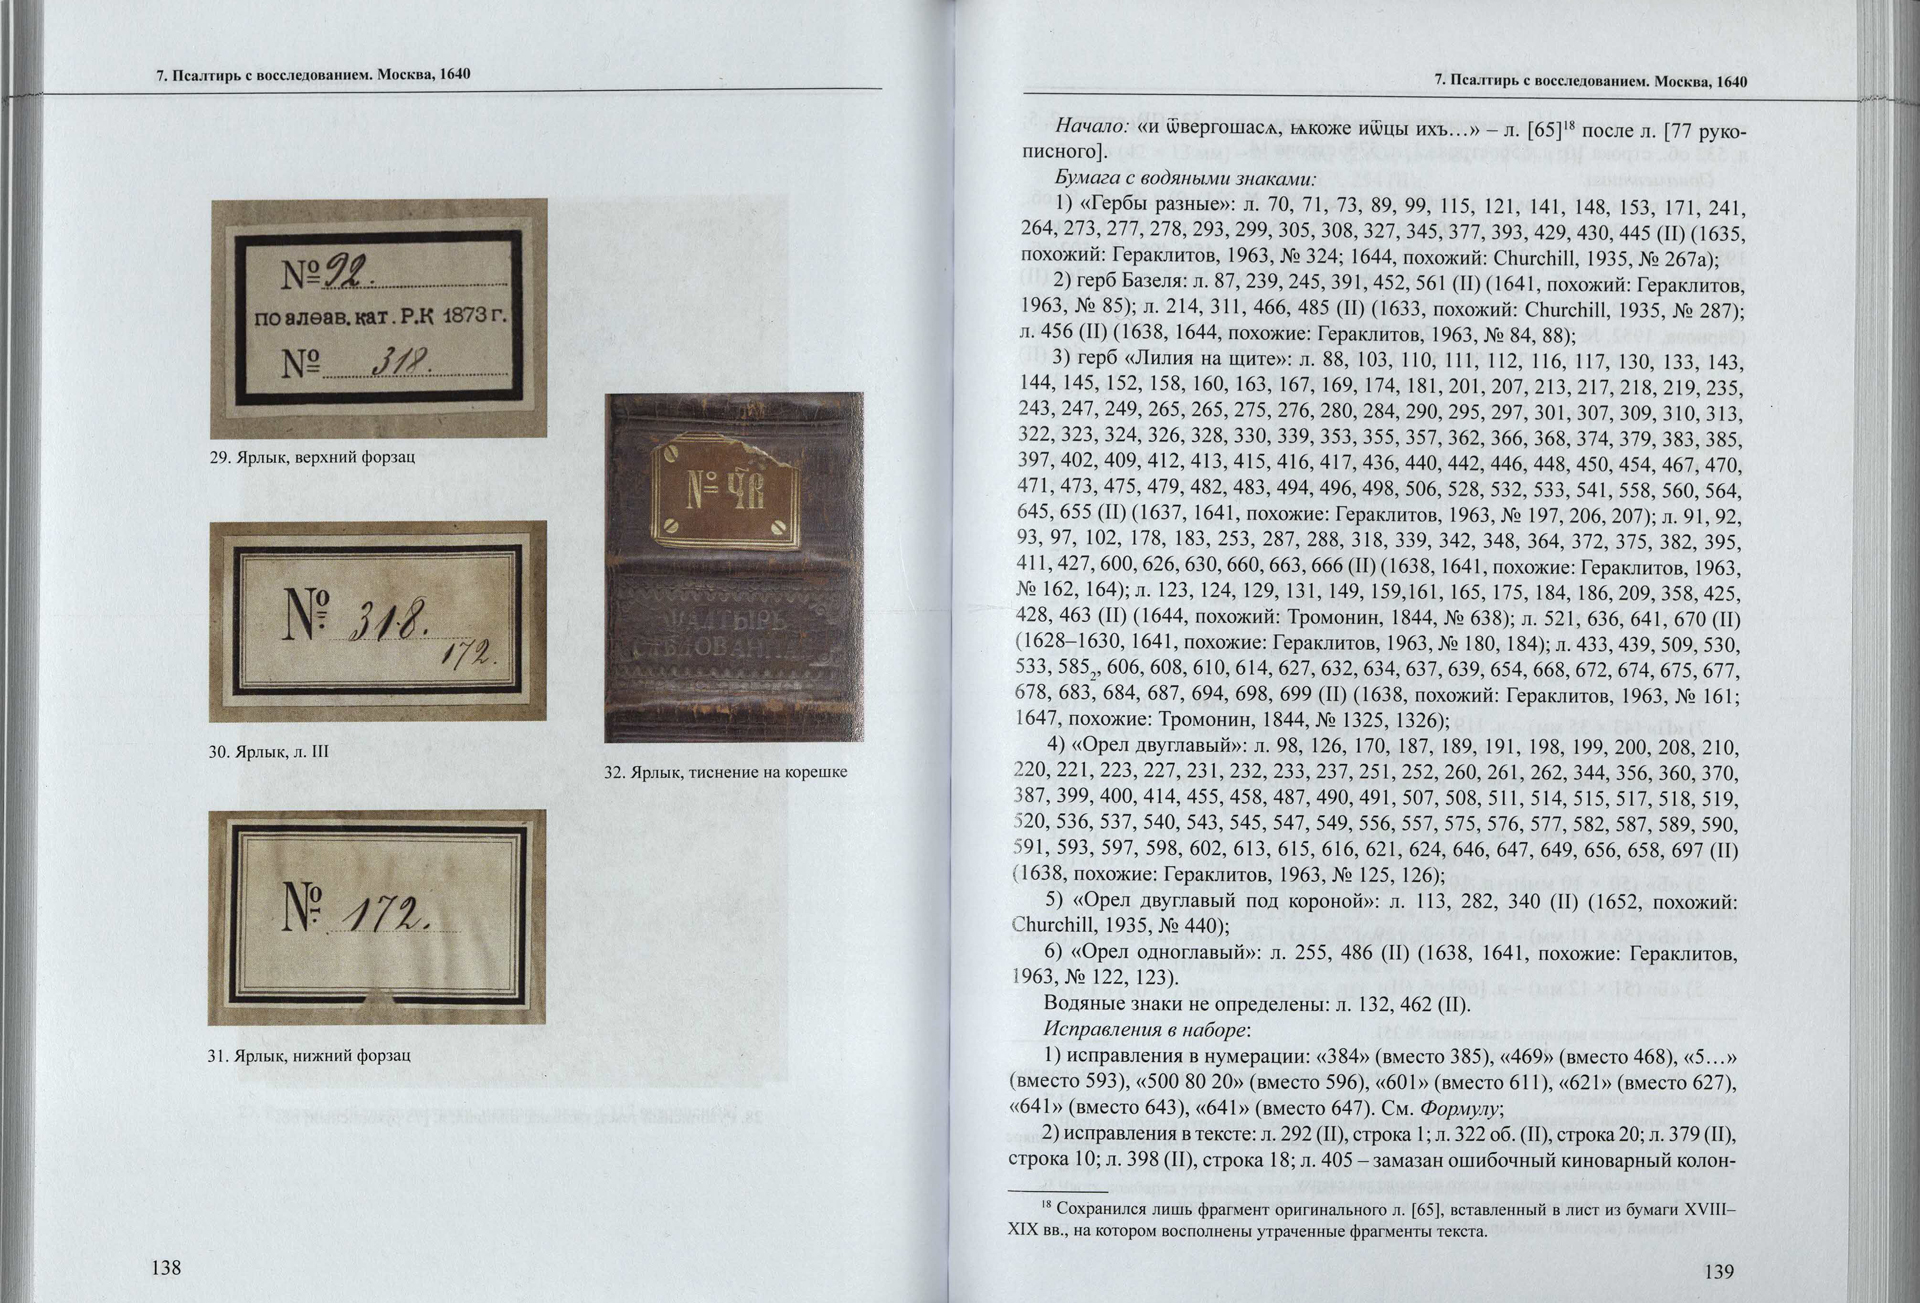 7. Псалтирь с восследованием. Москва, 1640
№ 92.
по алѳав. кат. Р.К 1873 г.
№ 318.
29. Ярлык, верхний форзац
№ 318.
172.
30. Ярлык, л. III
№ 172.
31. Ярлык, нижний форзац
№ ЧВ
ѰАЛТЫРЬ
СЛѢДОВАННАЯ
32. Ярлык, тиснение на корешке
138
7. Псалтирь с восследованием. Москва, 1640
Начало: «и ѿвергошасѧ, ꙗкоже иѿцы ихъ…» – л. [65]18 после л. [77 руко-
писного].
Бумага с водяными знаками:
1) «Гербы разные»: л. 70, 71, 73, 89, 99, 115, 121, 141, 148, 153, 171, 241,
264, 273, 277, 278, 293, 299, 305, 308, 327, 345, 377, 393, 429, 430, 445 (II) (1635,
похожий: Гераклитов, 1963, № 324; 1644, похожий: Churchill, 1935, № 267а);
2) герб Базеля: л. 87, 239, 245, 391, 452, 561 (II) (1641, похожий: Гераклитов,
1963, № 85); л. 214, 311, 466, 485 (II) (1633, похожий: Churchill, 1935, № 287);
л. 456 (II) (1638, 1644, похожие: Гераклитов, 1963, № 84, 88);
3) герб «Лилия на щите»: л. 88, 103, 110, 111, 112, 116, 117, 130, 133, 143,
144, 145, 152, 158, 160, 163, 167, 169, 174, 181, 201, 207, 213, 217, 218, 219, 235,
243, 247, 249, 265, 265, 275, 276, 280, 284, 290, 295, 297, 301, 307, 309, 310, 313,
322, 323, 324, 326, 328, 330, 339, 353, 355, 357, 362, 366, 368, 374, 379, 383, 385,
397, 402, 409, 412, 413, 415, 416, 417, 436, 440, 442, 446, 448, 450, 454, 467, 470,
471, 473, 475, 479, 482, 483, 494, 496, 498, 506, 528, 532, 533, 541, 558, 560, 564,
645, 655 (II) (1637, 1641, похожие: Гераклитов, 1963, № 197, 206, 207); л. 91, 92,
93, 97, 102, 178, 183, 253, 287, 288, 318, 339, 342, 348, 364, 372, 375, 382, 395,
411, 427, 600, 626, 630, 660, 663, 666 (II) (1638, 1641, похожие: Гераклитов, 1963,
№ 162, 164); л. 123, 124, 129, 131, 149, 159,161, 165, 175, 184, 186, 209, 358, 425,
428, 463 (II) (1644, похожий: Тромонин, 1844, № 638); л. 521, 636, 641, 670 (II)
(1628–1630, 1641, похожие: Гераклитов, 1963, № 180, 184); л. 433, 439, 509, 530,
533, 5852, 606, 608, 610, 614, 627, 632, 634, 637, 639, 654, 668, 672, 674, 675, 677,
678, 683, 684, 687, 694, 698, 699 (II) (1638, похожий: Гераклитов, 1963, № 161;
1647, похожие: Тромонин, 1844, № 1325, 1326);
4) «Орел двуглавый»: л. 98, 126, 170, 187, 189, 191, 198, 199, 200, 208, 210,
220, 221, 223, 227, 231, 232, 233, 237, 251, 252, 260, 261, 262, 344, 356, 360, 370,
387, 399, 400, 414, 455, 458, 487, 490, 491, 507, 508, 511, 514, 515, 517, 518, 519,
520, 536, 537, 540, 543, 545, 547, 549, 556, 557, 575, 576, 577, 582, 587, 589, 590,
591, 593, 597, 598, 602, 613, 615, 616, 621, 624, 646, 647, 649, 656, 658, 697 (II)
(1638, похожие: Гераклитов, 1963, № 125, 126);
5) «Орел двуглавый под короной»: л. 113, 282, 340 (II) (1652, похожий:
Churchill, 1935, № 440);
6) «Орел одноглавый»: л. 255, 486 (II) (1638, 1641, похожие: Гераклитов,
1963, № 122, 123).
Водяные знаки не определены: л. 132, 462 (II).
Исправления в наборе:
1) исправления в нумерации: «384» (вместо 385), «469» (вместо 468), «5…»
(вместо 593), «500 80 20» (вместо 596), «601» (вместо 611), «621» (вместо 627),
«641» (вместо 643), «641» (вместо 647). См. Формулу;
2) исправления в тексте: л. 292 (II), строка 1; л. 322 об. (II), строка 20; л. 379 (II),
строка 10; л. 398 (II), строка 18; л. 405 – замазан ошибочный киноварный колон-
18 Сохранился лишь фрагмент оригинального л. [65], вставленный в лист из бумаги XVIII–
XIX вв., на котором восполнены утраченные фрагменты текста.
139